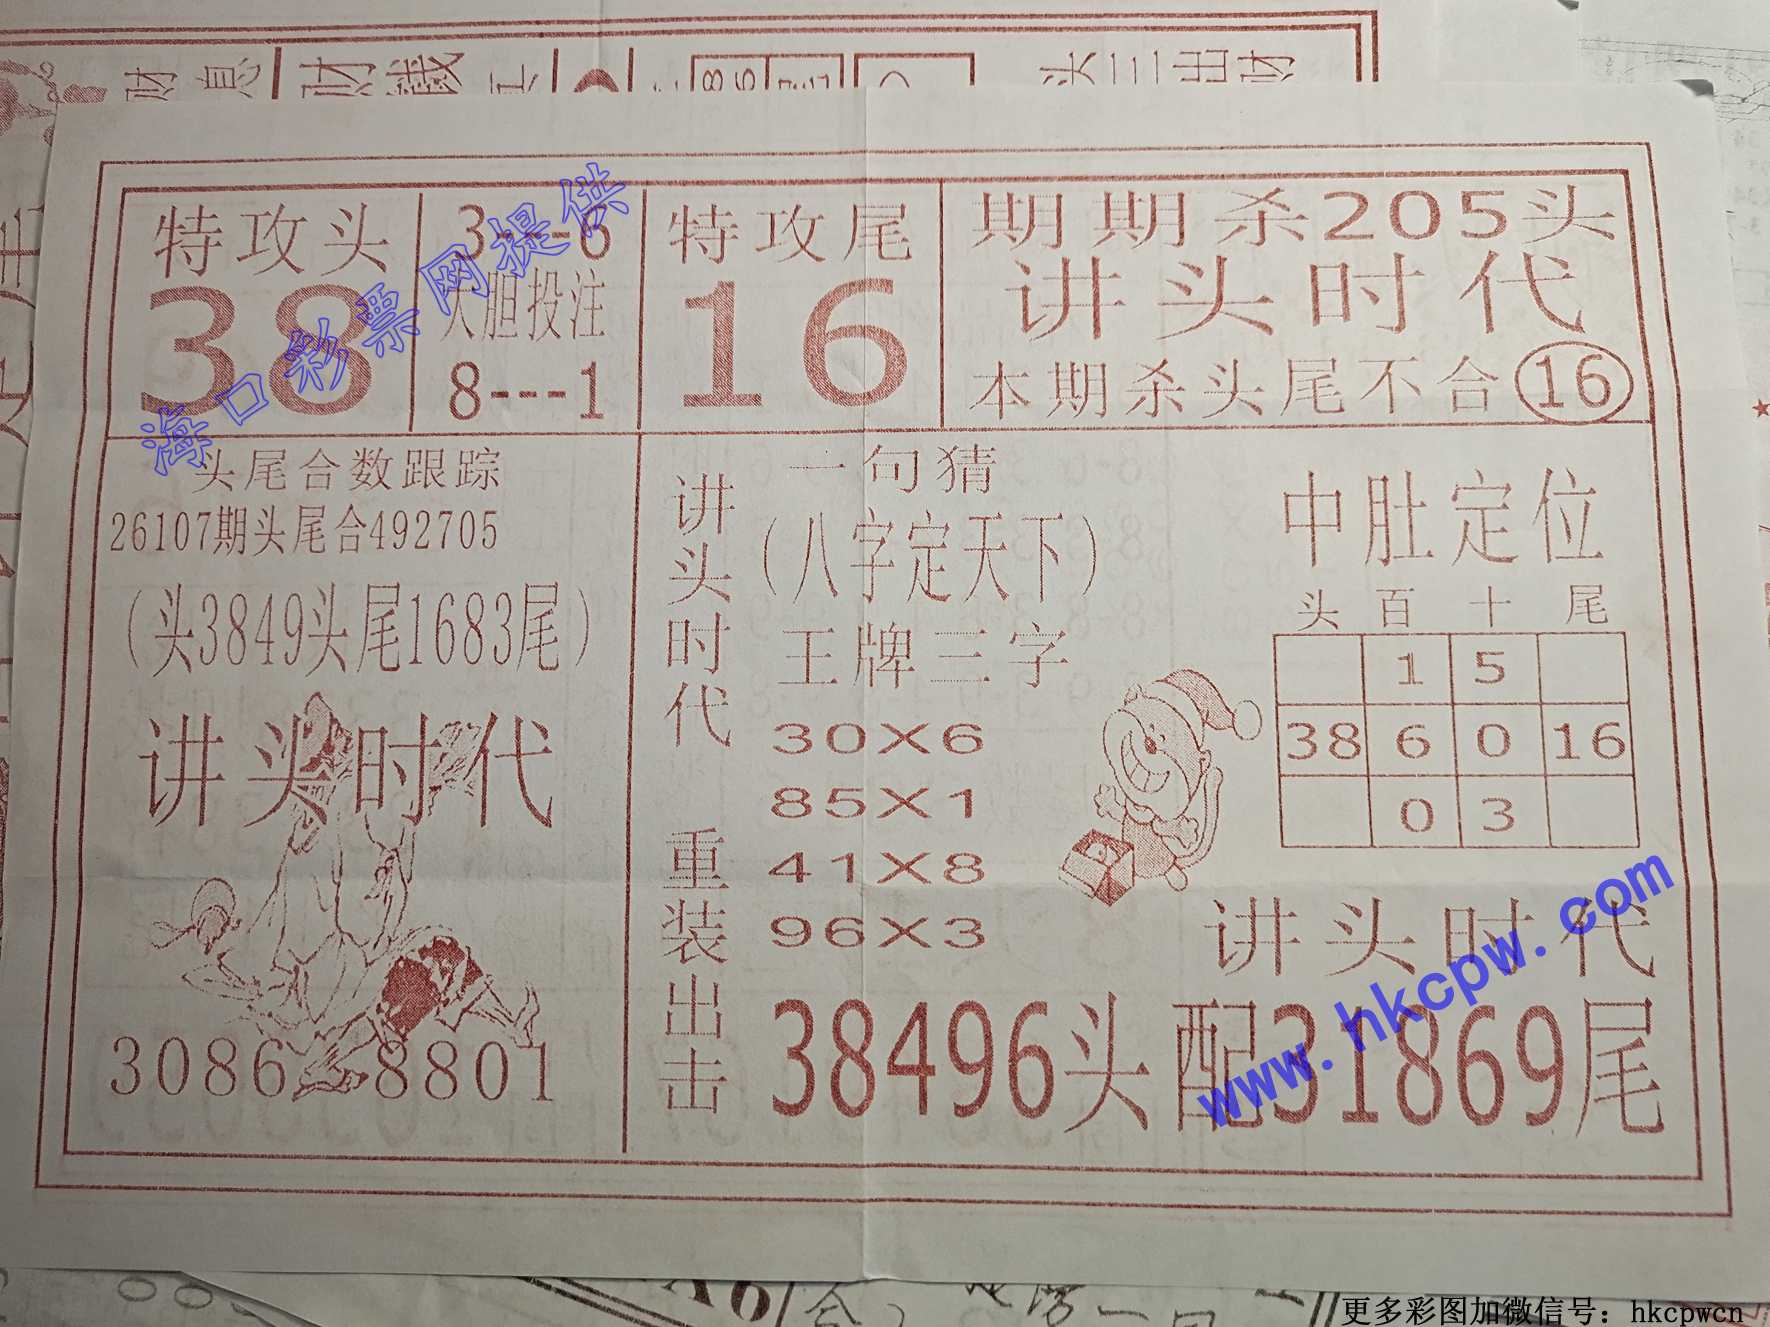 财 息
财
头三二出财
特攻头
38
3---6
大胆投注
8---1
特攻尾
16
期期杀205头
讲头时代
本期杀头尾不合16
头尾合数跟踪
26107期头尾合492705
(头3849头尾1683尾)
讲头时代
3086 8801
讲头时代
重装出击
一句猜
(八字定天下)
王牌三字
30X6
85X1
41X8
96X3
中肚定位
头 百 十 尾
1 5
38 6 0 16
0 3
讲头时代
38496头配31869尾
海口彩票网提供
www.hkcpw.com
更多彩图加微信号：hkcpwcn